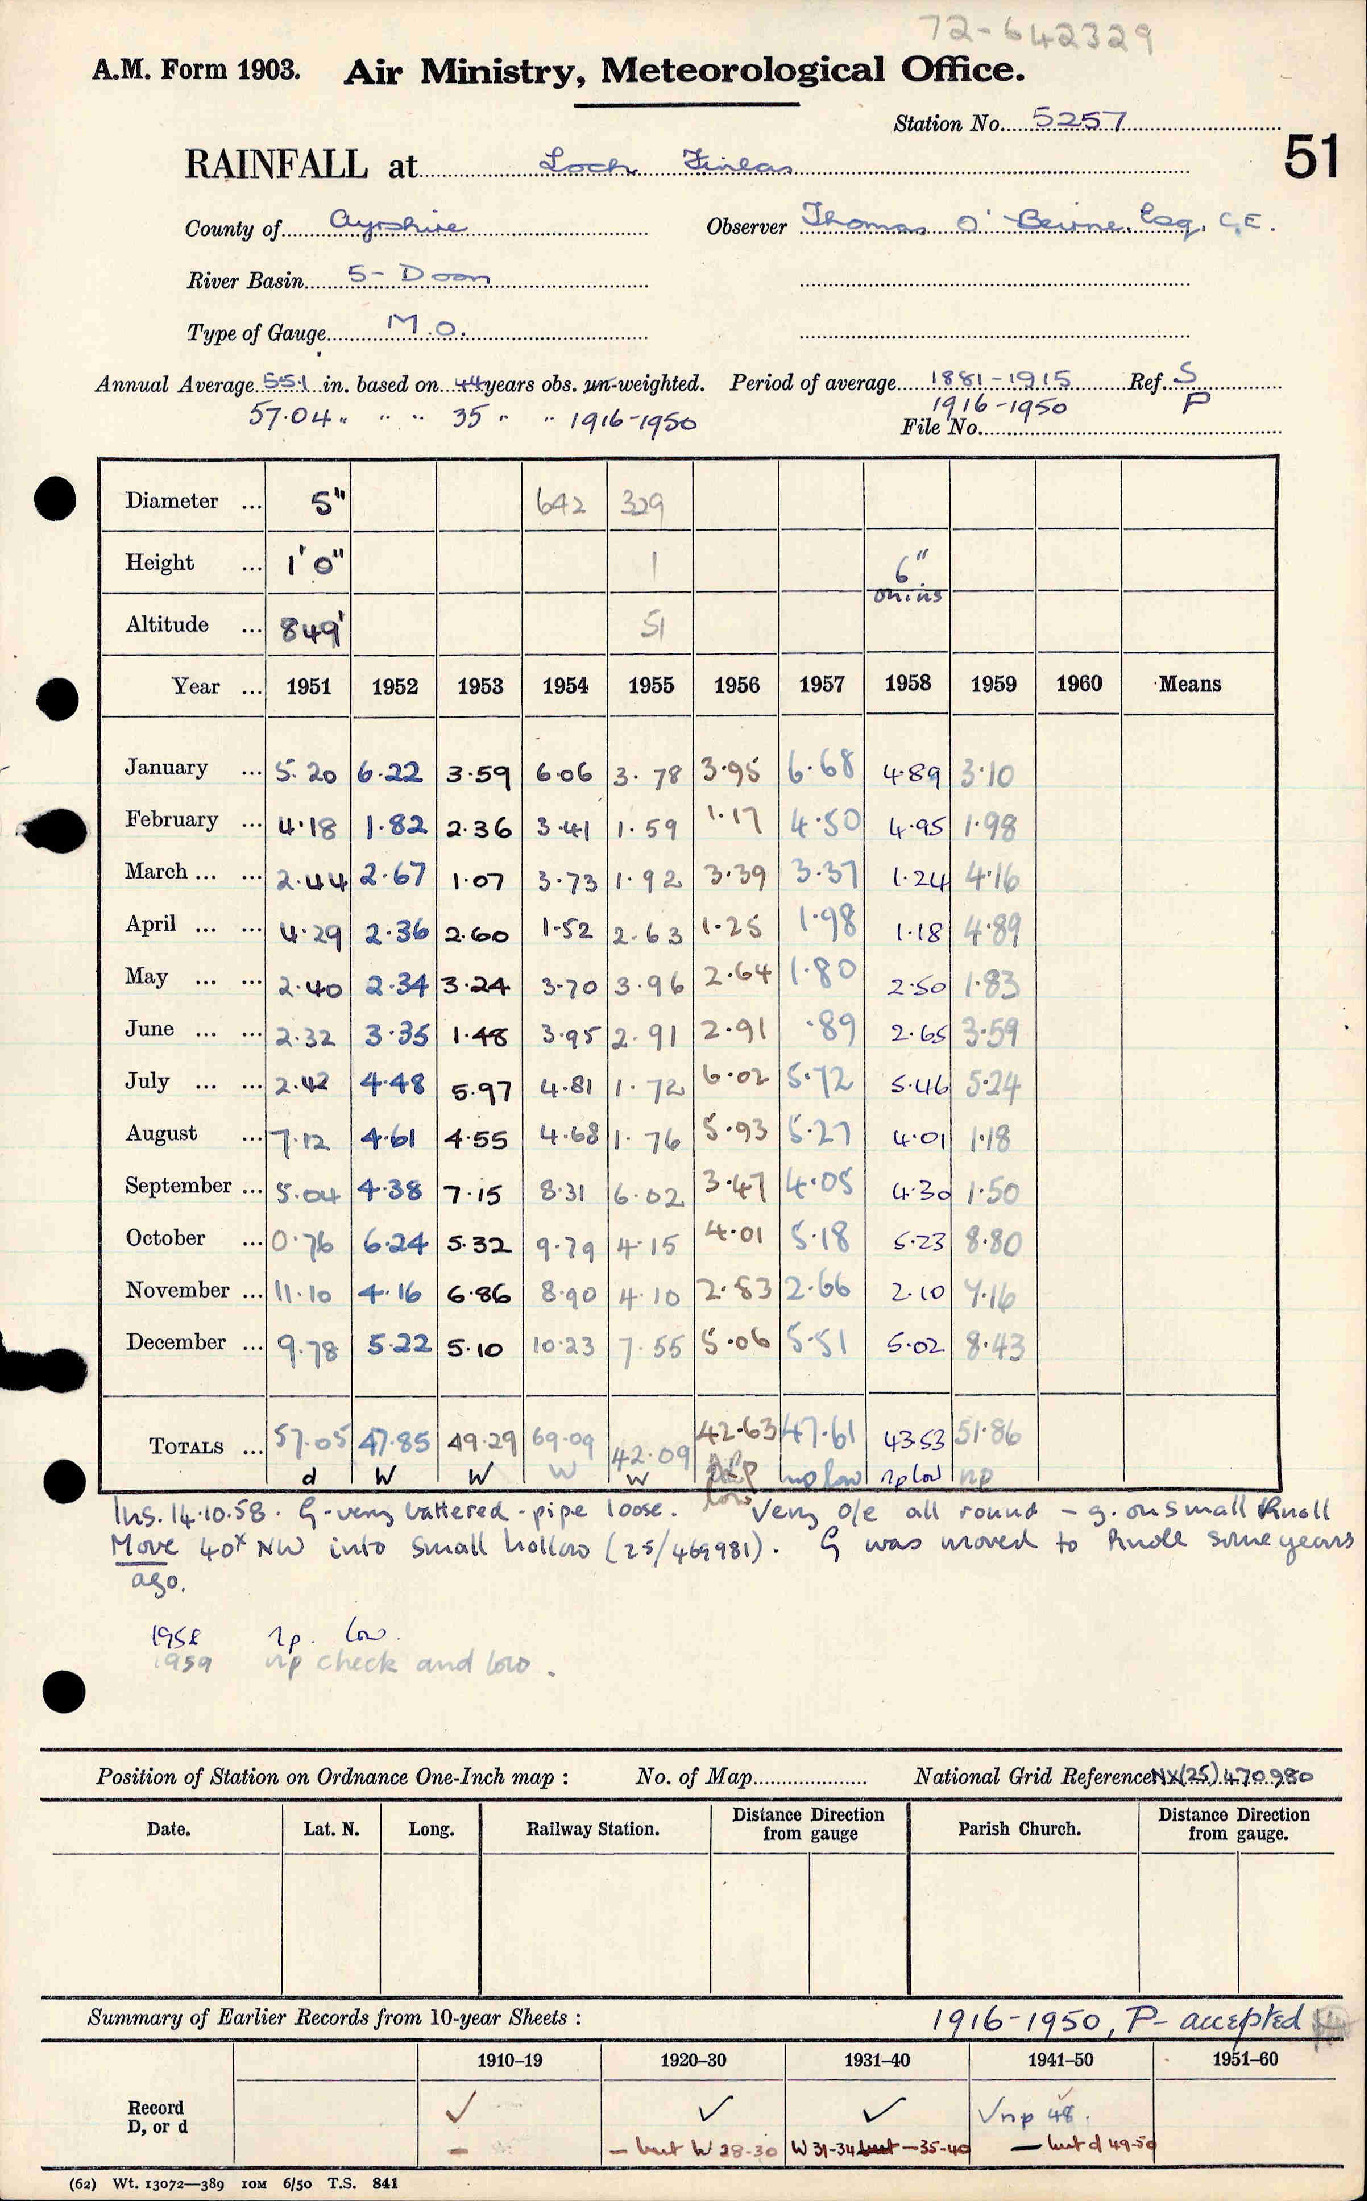 72-642329
A.M. Form 1903. Air Ministry, Meteorological Office.
Station No. 5257
51
RAINFALL at Loch Finlas
County of Ayrshire Observer Thomas O'Beirne, Esq, C.E.
River Basin 5- Doon
Type of Gauge M.O.
Annual Average 55.1 in. based on 44 years obs. un-weighted. Period of average 1881-1915 Ref. S
57.04 " " " 35 " " 1916-1950 1916-1950 P
File No.
Diameter ... 5" 642 329
Height ... 1'0" 1 6" on ins
Altitude ... 849' 51
Year ... 1951 1952 1953 1954 1955 1956 1957 1958 1959 1960 Means
January ... 5.20 6.22 3.59 6.06 3.78 3.95 6.68 4.89 3.10
February ... 4.18 1.82 2.36 3.41 1.59 1.17 4.50 4.95 1.98
March ... ... 2.44 2.67 1.07 3.73 1.92 3.39 3.37 1.24 4.16
April ... ... 4.29 2.36 2.60 1.52 2.63 1.25 1.98 1.18 4.89
May ... ... 2.40 2.34 3.24 3.70 3.96 2.64 1.80 2.50 1.83
June ... ... 2.32 3.35 1.48 3.95 2.91 2.91 .89 2.65 3.59
July ... ... 2.42 4.48 5.97 4.81 1.72 6.02 5.72 5.46 5.24
August ... 7.12 4.61 4.55 4.68 1.76 5.93 5.27 4.01 1.18
September ... 5.04 4.38 7.15 8.31 6.02 3.47 4.05 4.30 1.50
October ... 0.76 6.24 5.32 9.79 4.15 4.01 5.18 5.23 8.80
November ... 11.10 4.16 6.86 8.90 4.10 2.83 2.66 2.10 7.16
December ... 9.78 5.22 5.10 10.23 7.55 5.06 5.51 5.02 8.43
TOTALS ... 57.05 47.85 49.29 69.09 42.09 42.63 47.61 43.53 51.86
d W W W W low np low np low np
Ins. 14.10.58. G-very battered - pipe loose. Very o/e all round - g. on small knoll
Move 40x NW into small hollow (25/469981). G was moved to knoll some years
ago.
1958 np. low.
1959 np check and low.
Position of Station on Ordnance One-Inch map : No. of Map National Grid Reference NX(25)470980
Date. Lat. N. Long. Railway Station. Distance Direction from gauge Parish Church. Distance Direction from gauge.
Summary of Earlier Records from 10-year Sheets : 1916-1950, P- accepted
1910–19 1920–30 1931–40 1941–50 1951–60
Record ✓ ✓ ✓ ✓ np 48.
D, or d - - but W 28-30 W 31-34 but - 35-40 - but d 49-50
(62) Wt. 13072—389 10M 6/50 T.S. 841